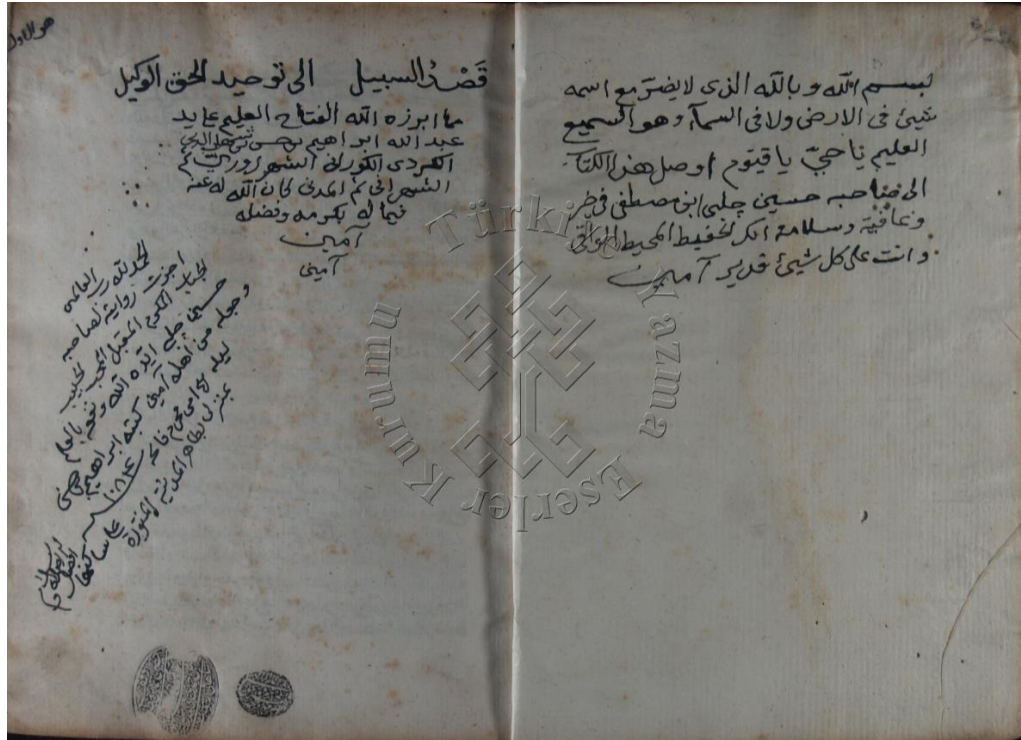 بسم الله وبالله الذى لا يضر مع اسمه
شيئ فى الارض ولا فى السمآء وهو السميع
العليم ياحيّ ياقيّوم اوصل هذا الكتاب
الى صاحبه حسين چلبى ابن مصطفى فى خير
وعافية وسلامة انك الحفيظ المحيط الواقى
وانت على كل شيئ قدير آمين
هو الاول
قَصْدُ السبيل الى توحيد الحق الوكيل
مما ابرزه الله الفتاح العليم على يد
عبد الله ابراهيم بن حسن بن شهاب الدين
الكردى الكورانى الشهرزورى ثم
الشهرانى ثم المدنى كان الله له عنه
فيما له بكرمه وفضله
آمين
آمين
الحمد لله رب العالمين
اجزت روايته لصاحبه
الجناب المكرم المقبل المحب الحبيب
حسين چلبى ايّده الله ونفعه بالعلم
وجعله من اهله آمين كتبه ابراهيم بن حسن
ليلة محرم فاتحة ١٠٨٤
بمنزلى بظاهر المدينة المنورة
على ساكنها
افضل الصلاة و
Türkiye Yazma Eserler Kurumu